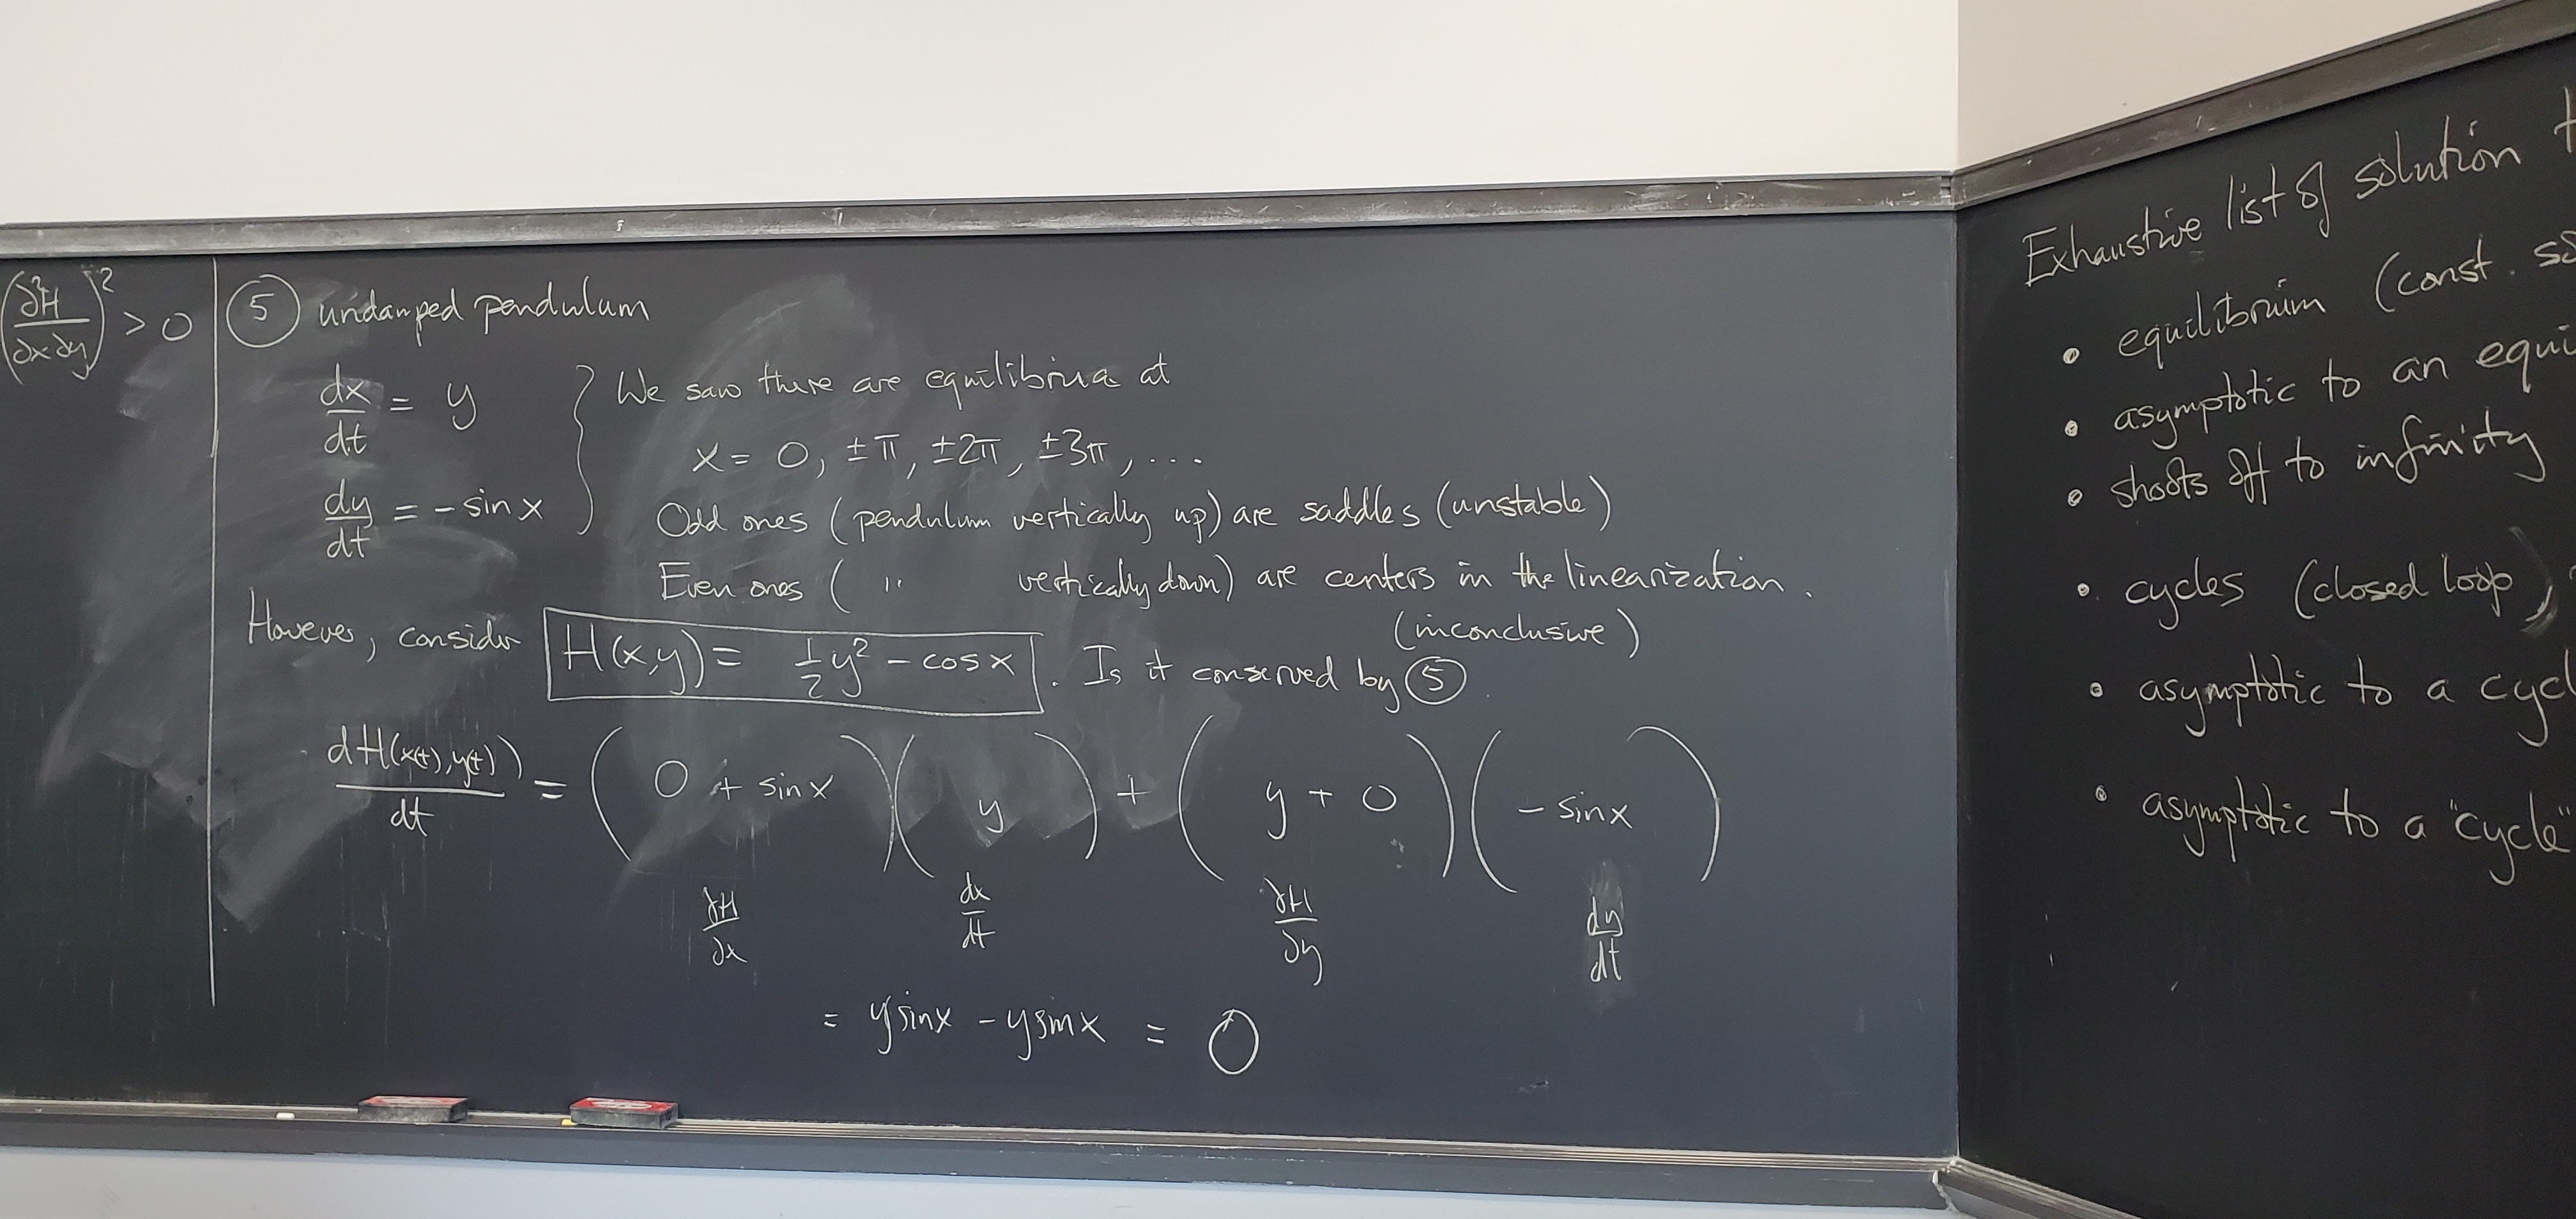 (∂²H/∂x∂y)² > 0
⑤ undamped pendulum
dx/dt = y
dy/dt = - sin x
We saw there are equilibria at
x = 0, ±π, ±2π, ±3π, ...
Odd ones (pendulum vertically up) are saddles (unstable)
Even ones ( " vertically down) are centers in the linearization.
(inconclusive)
However, consider H(x,y) = ½y² - cos x . Is it conserved by ⑤
dH(x(t),y(t))/dt = (0 + sin x)(y) + (y + 0)(- sin x)
∂H/∂x dx/dt ∂H/∂y dy/dt
= y sin x - y sin x = 0
Exhaustive list of solution
• equilibrium (const.
• asymptotic to an
• shoots off to infinity
• cycles (closed loop)
• asymptotic to a
• asymptotic to a "cycle"